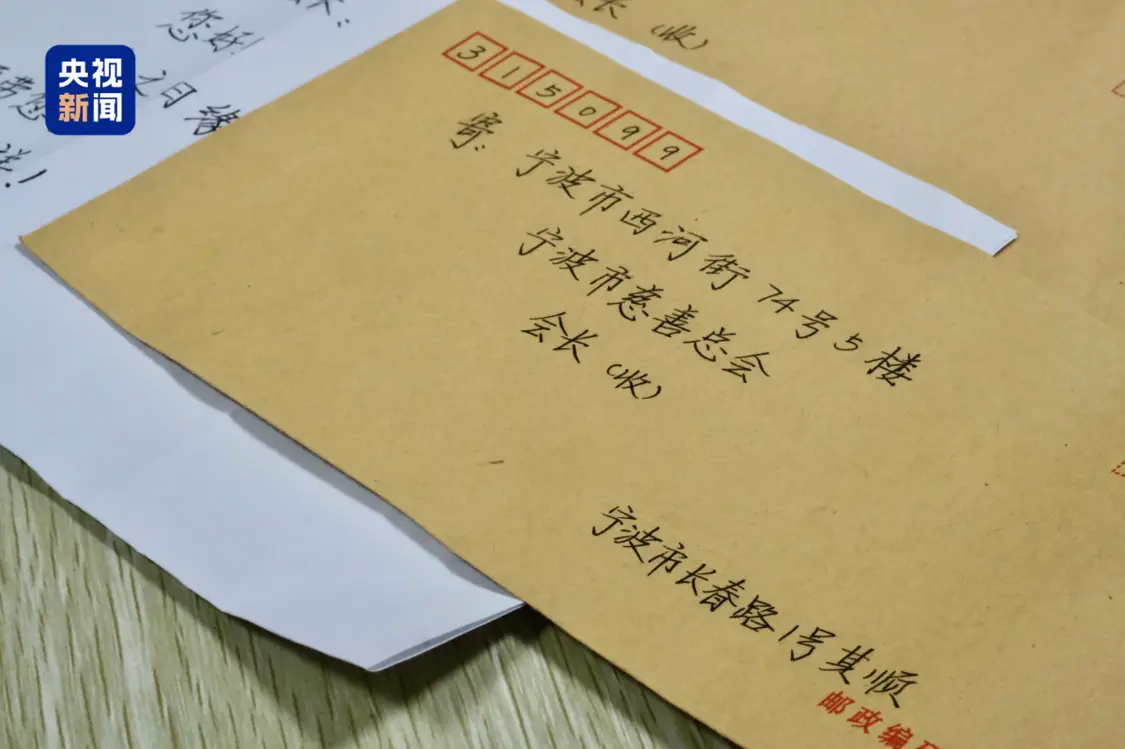 央视
新闻
您好!
之日缘
会长（收）
315099
寄:
宁波市西河街74号5楼
宁波市慈善总会
会长（收）
宁波市长春路1号其顺
邮政编